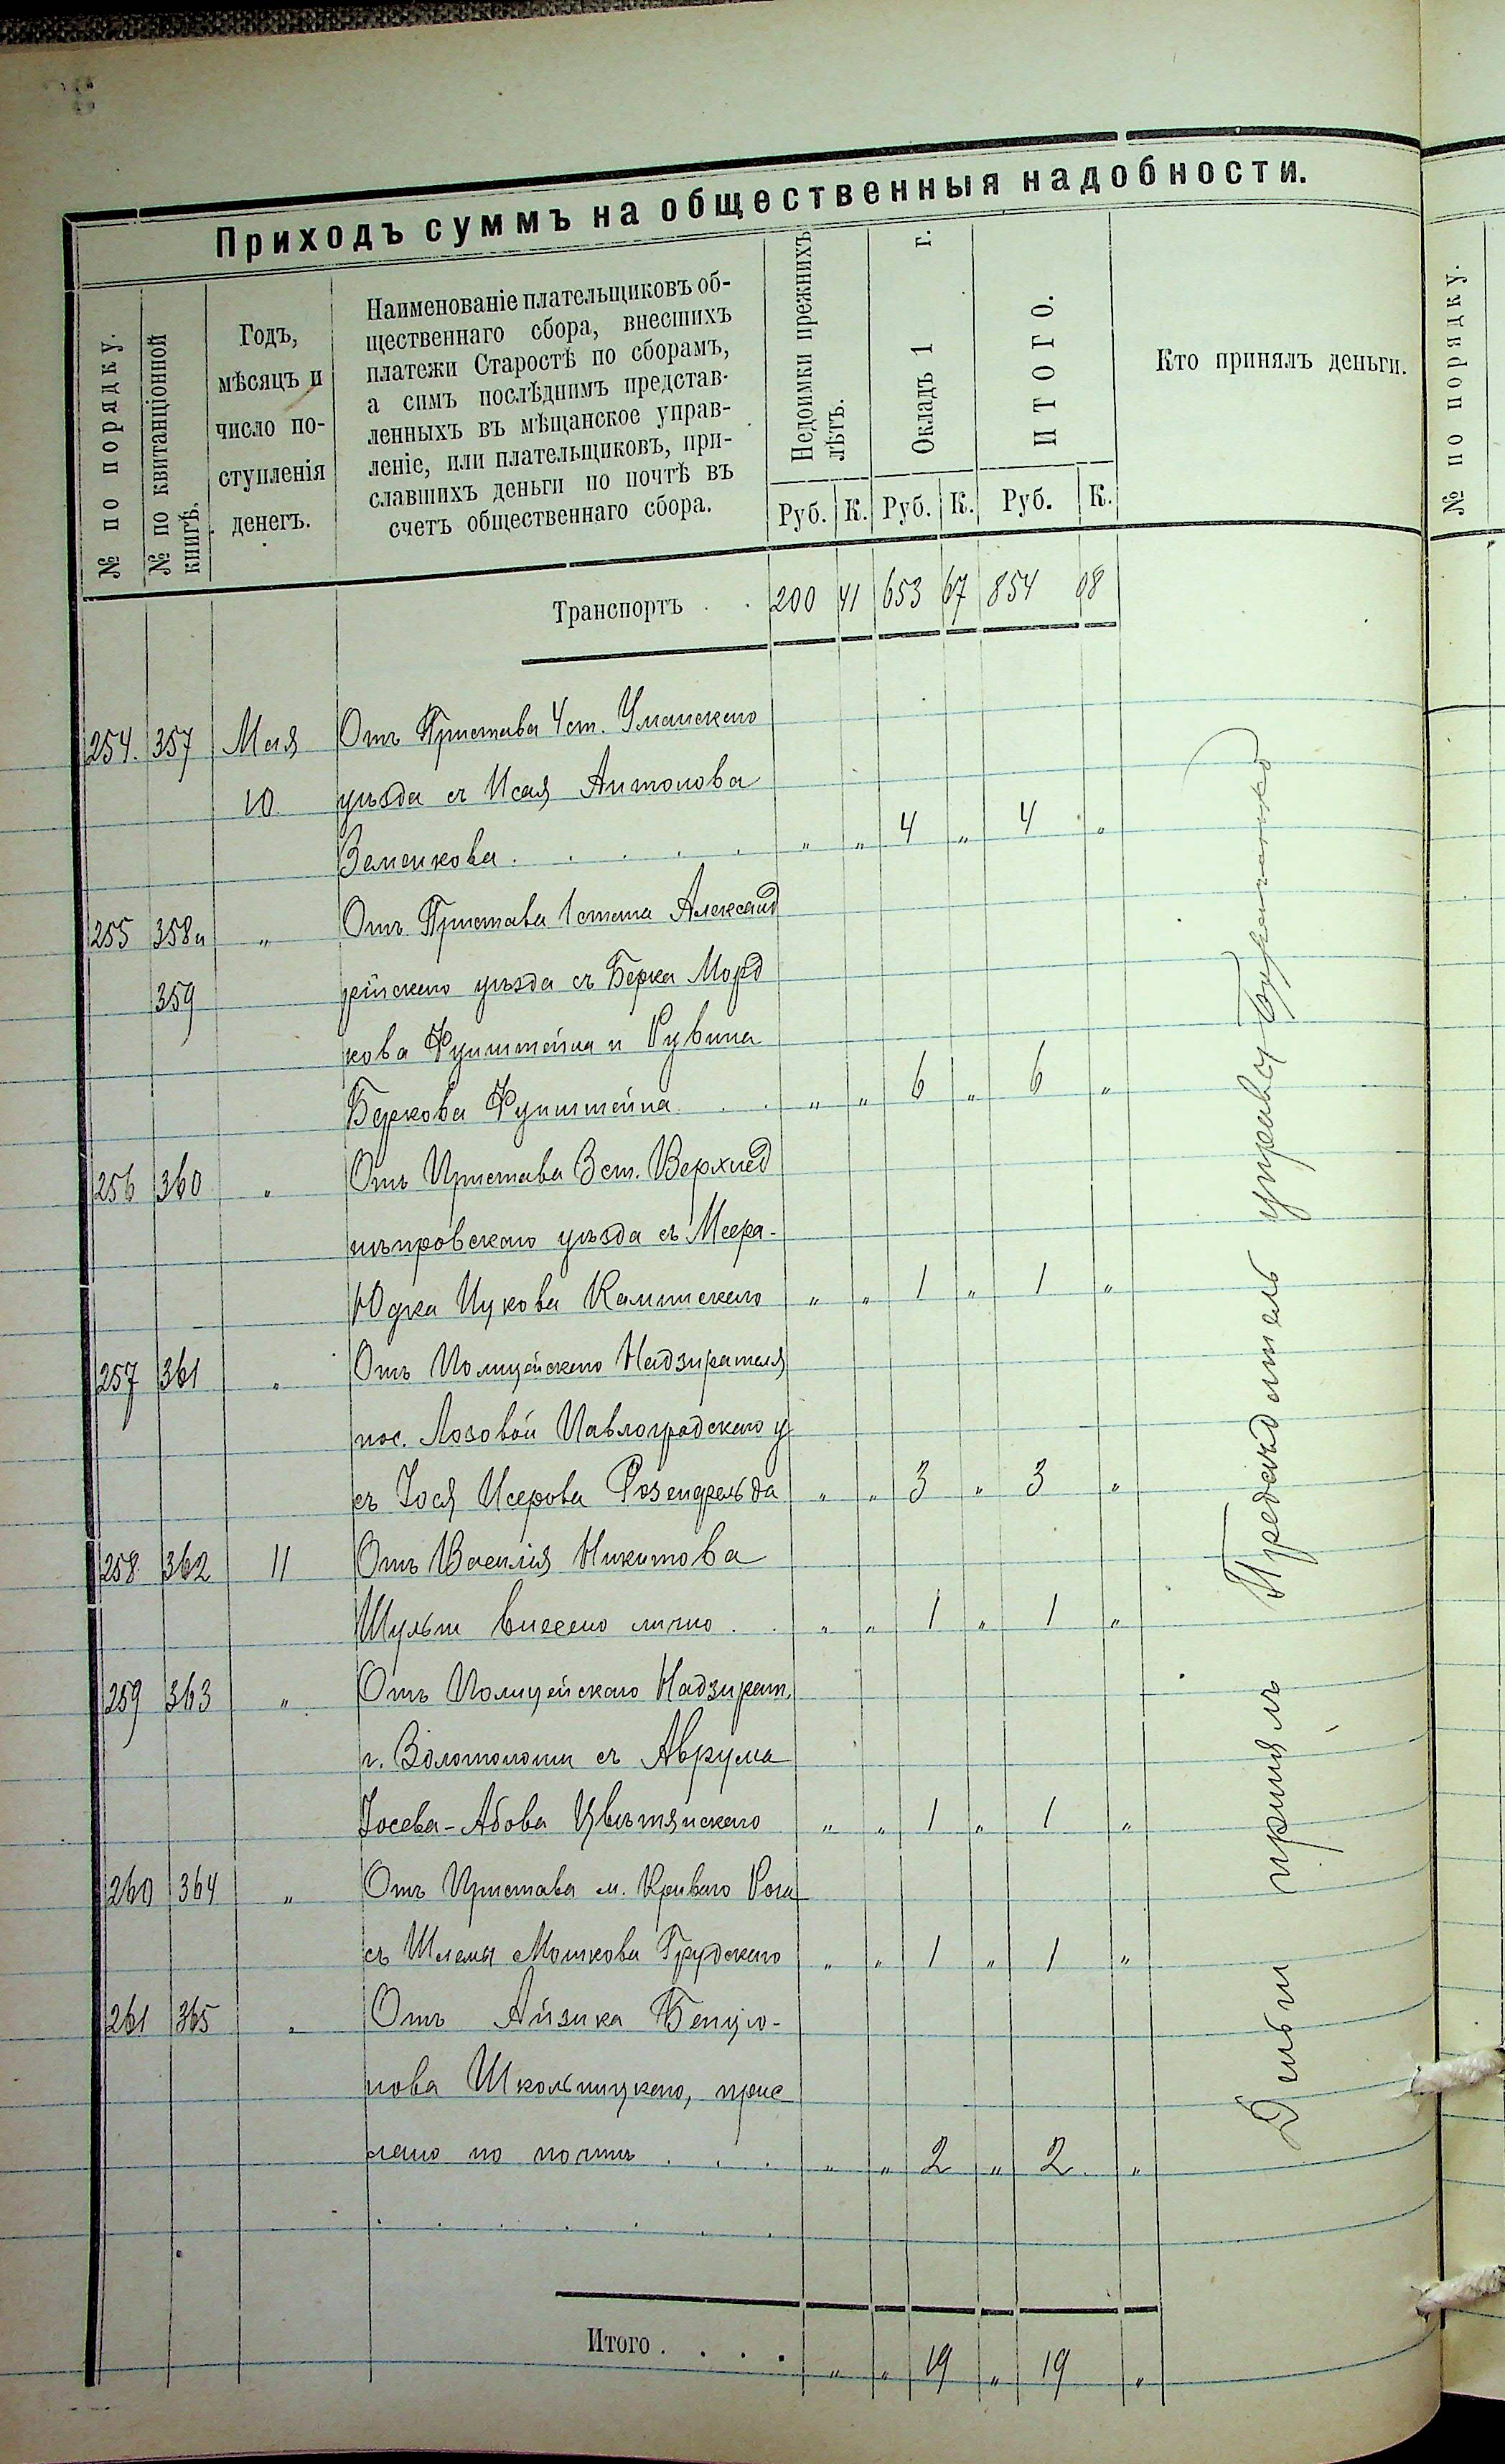 Приходъ суммъ на общественныя надобности.
№ по порядку.
№ по квитанціонной книгѣ.
Годъ,
мѣсяцъ и
число по-
ступленія
денегъ.
Наименованіе плательщиковъ об-
щественнаго сбора, внесшихъ
платежи Старостѣ по сборамъ,
а симъ послѣднимъ представ-
ленныхъ въ мѣщанское управ-
леніе, или плательщиковъ, при-
славшихъ деньги по почтѣ въ
счетъ общественнаго сбора.
Недоимки прежнихъ лѣтъ.
Окладъ 1 г.
ИТОГО.
Кто принялъ деньги.
№ по порядку.
Руб. К. Руб. К. Руб. К.
Транспортъ . . 200 41 653 67 854 08
254. 357 Мая Отъ Пристава 4 ст. Уманскаго
10 уѣзда съ Исая Антонова
Земенкова . . . . . „ „ 4 „ 4 „
255 358 и „ Отъ Пристава 1 стана Александ
359 рійскаго уѣзда съ Берка Морд
кова Функштейна и Рувина
Беркова Функштейна . . „ „ 6 „ 6 „
256 360 „ Отъ Пристава 3 ст. Верхнед
нѣпровскаго уѣзда съ Меера-
Юдка Ицкова Каминскаго „ „ 1 „ 1 „
257 361 „ Отъ Полицейскаго Надзирателя
пос. Лозовой Павлоградскаго у.
съ Іося Исерова Розенфельда „ „ 3 „ 3 „
258 362 11 Отъ Василія Никитова
Шульги внесено лично . . „ „ 1 „ 1 „
259 363 „ Отъ Полицейскаго Надзират.
г. Золотоноши съ Аврума
Іосева-Абова Цвѣтянскаго „ „ 1 „ 1 „
260 364 „ Отъ Пристава м. Кривого Рога
съ Шлемы Мошкова Грудскаго „ „ 1 „ 1 „
261 365 „ Отъ Айзика Бенціо-
нова Школьницкаго, прис
лано по почтѣ . . . „ „ 2 „ 2 „
Итого . . . . „ „ 19 „ 19 „
Деньги принялъ Предсѣдатель управы